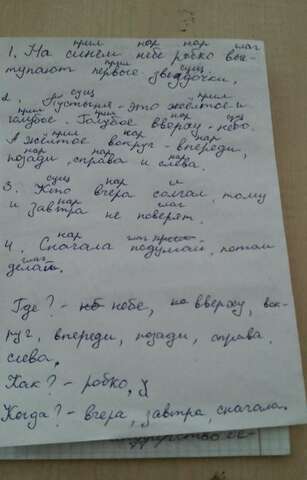 прил нар нар глаг
1. На синем небе робко выс-
прил сущ
тупают первые звездочки.
сущ прил
2. Пустыня - это жёлтое и
прил прил нар сущ
голубое. Голубое вверху - небо.
прил нар нар
А жёлтое вокруг - впереди,
нар нар нар
позади, справа и слева.
сущ нар
3. Кто вчера солгал, тому
нар глаг
и завтра не поверят.
нар глаг
4. Сначала подумай, потом
глаг
делай.
Где? - небе, вверху, вок-
руг, впереди, позади, справа,
слева.
Как? - робко,
Когда? - вчера, завтра, сначала.